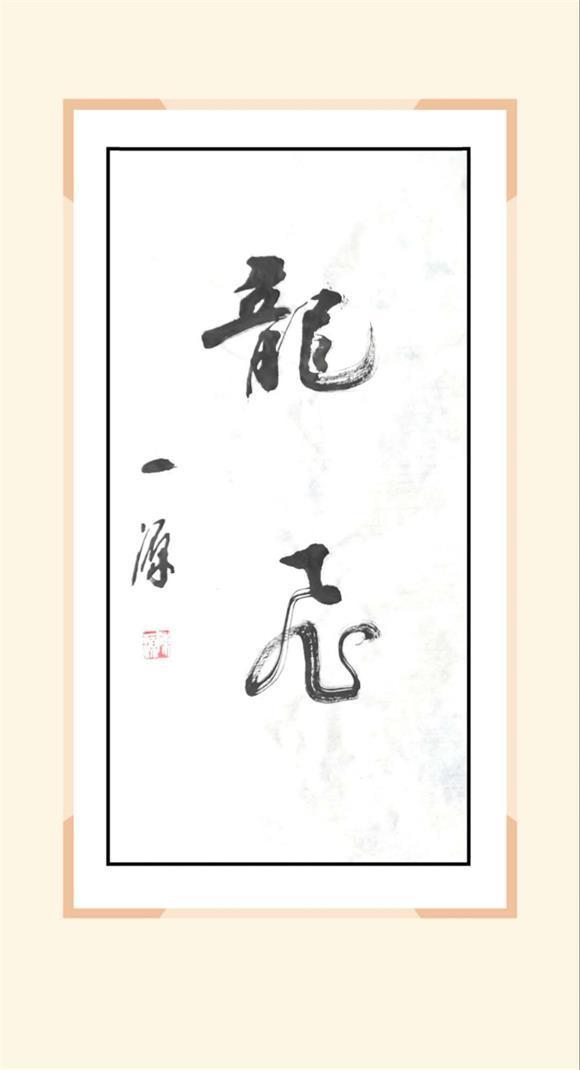 龍飛
一源